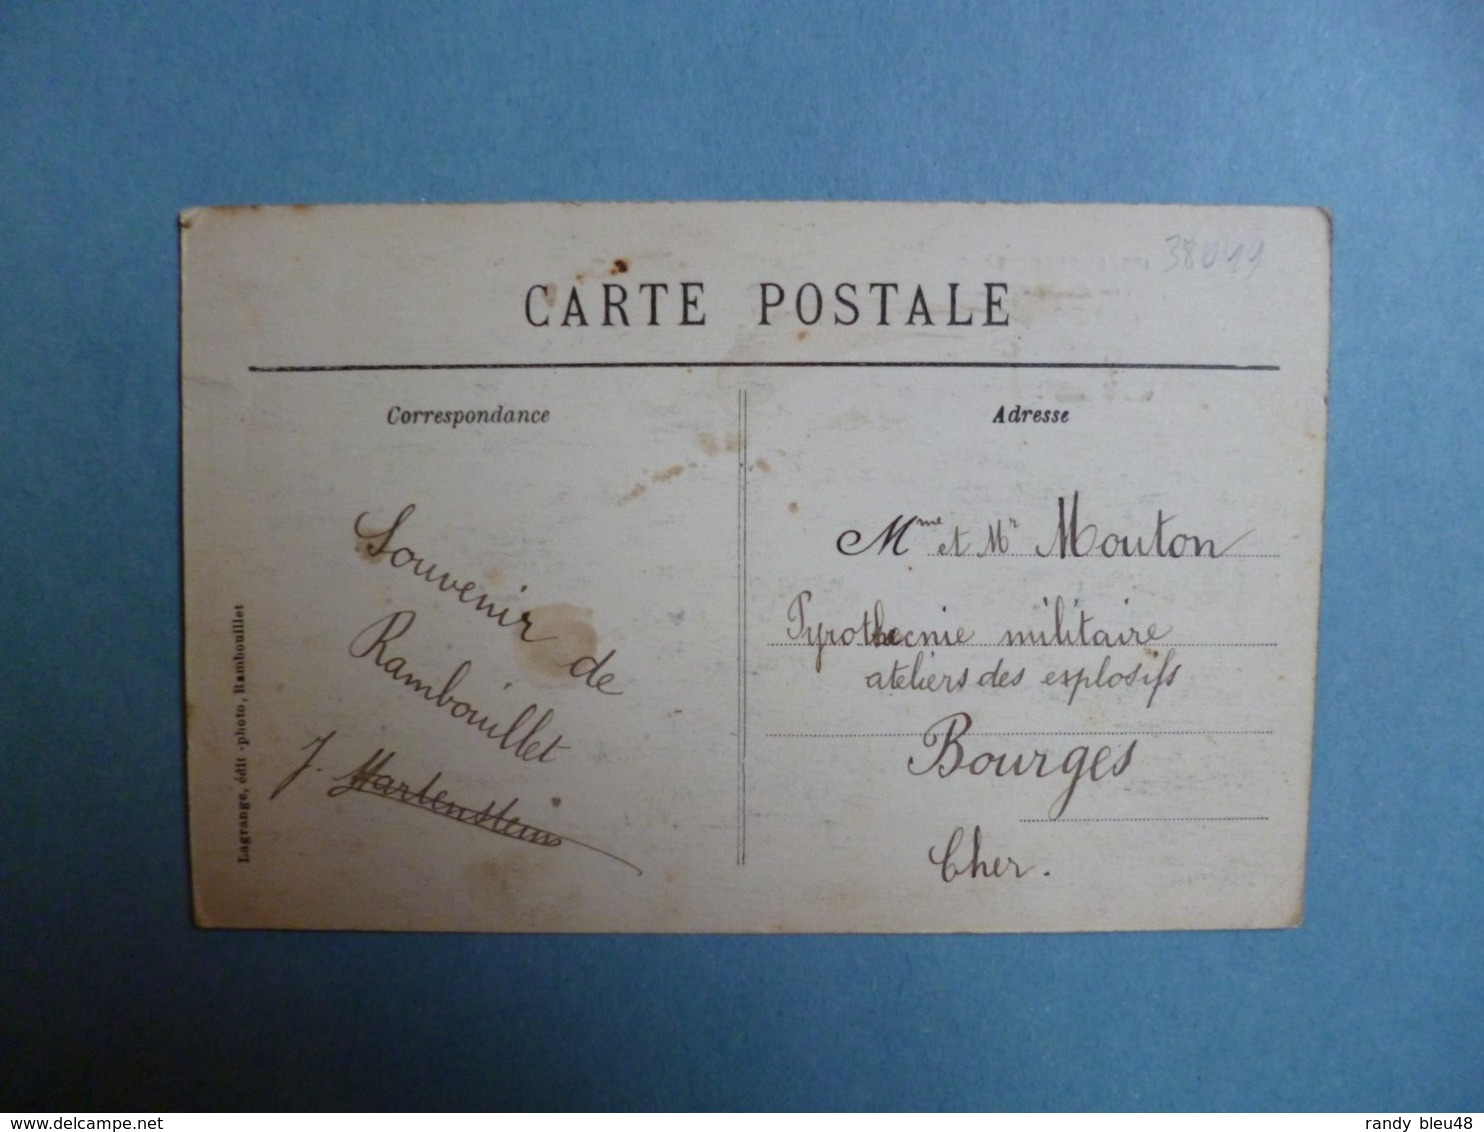 38049
CARTE POSTALE
Correspondance
Souvenir de
Rambouillet
J. Hartenstein
Lagrange, édit-photo, Rambouillet
Adresse
Mme et Mr Mouton
Pyrothecnie militaire
ateliers des explosifs
Bourges
Cher.
delcampe.net
randy_bleu48